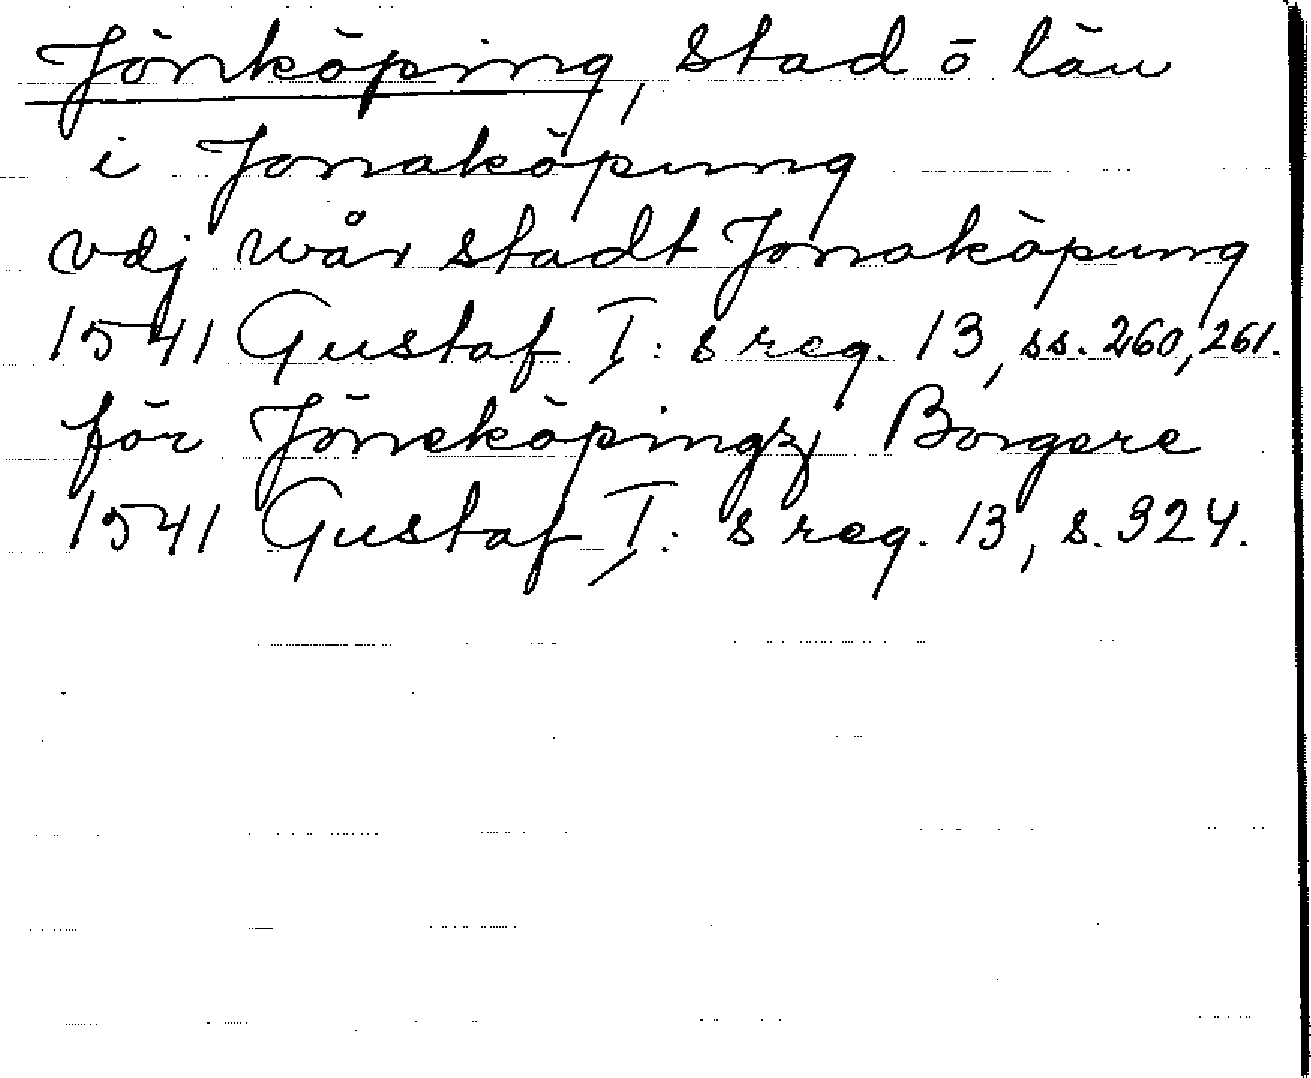 Jönköping, stad o län
i Jonaköpung
vdj wår stadt Jonaköpung
1541 Gustaf I:s reg. 13, ss. 260, 261.
för Jöneköpingz Borgere
1541 Gustaf I:s reg. 13, s. 324.